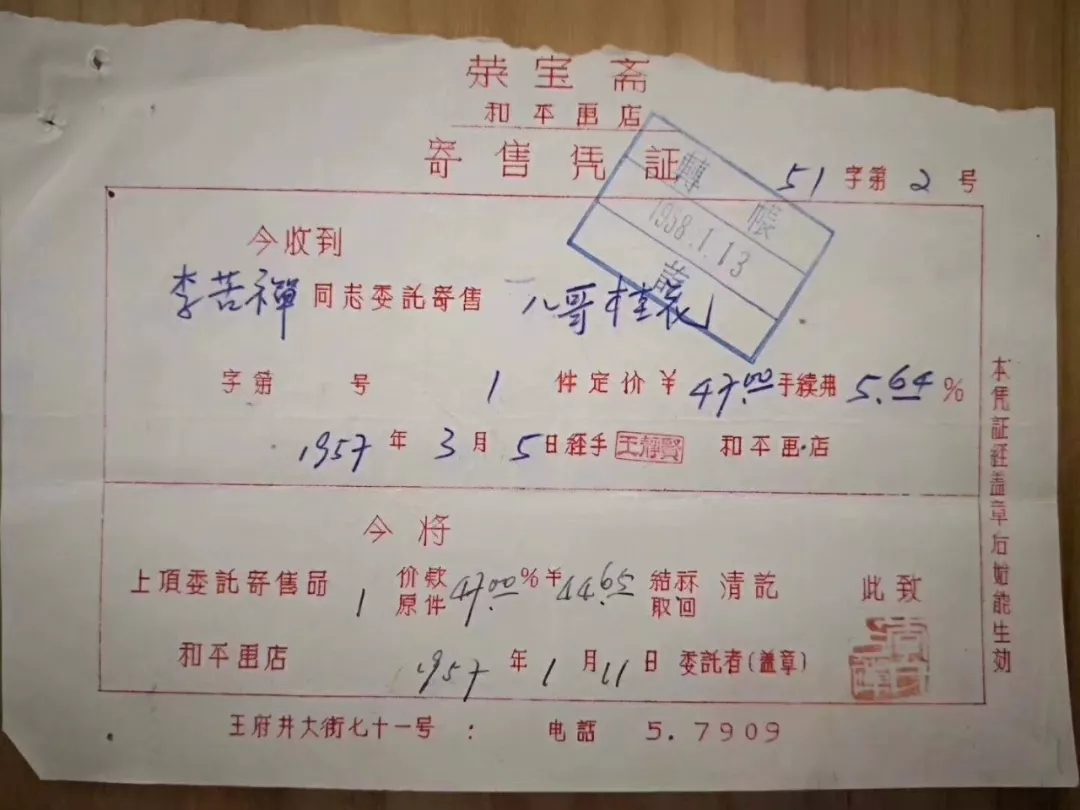 荣宝斋
和平画店
寄售凭証
51字第2号
轉帳
1958.1.13
訖
今收到
李苦禅同志委託寄售 八哥
字第 号 1 件定价￥47.00手續弗5.64%
1957年3月5日経手 王靜賢 和平画店
今将
上項委託寄售品 1 价欵 原件 47.00%￥44.65 结 取回 清訖 此致
和平画店 1957年1月11日 委託者(盖章)
王府井大街七十一号 : 电話 5.7909
本凭証経盖章后始能生効